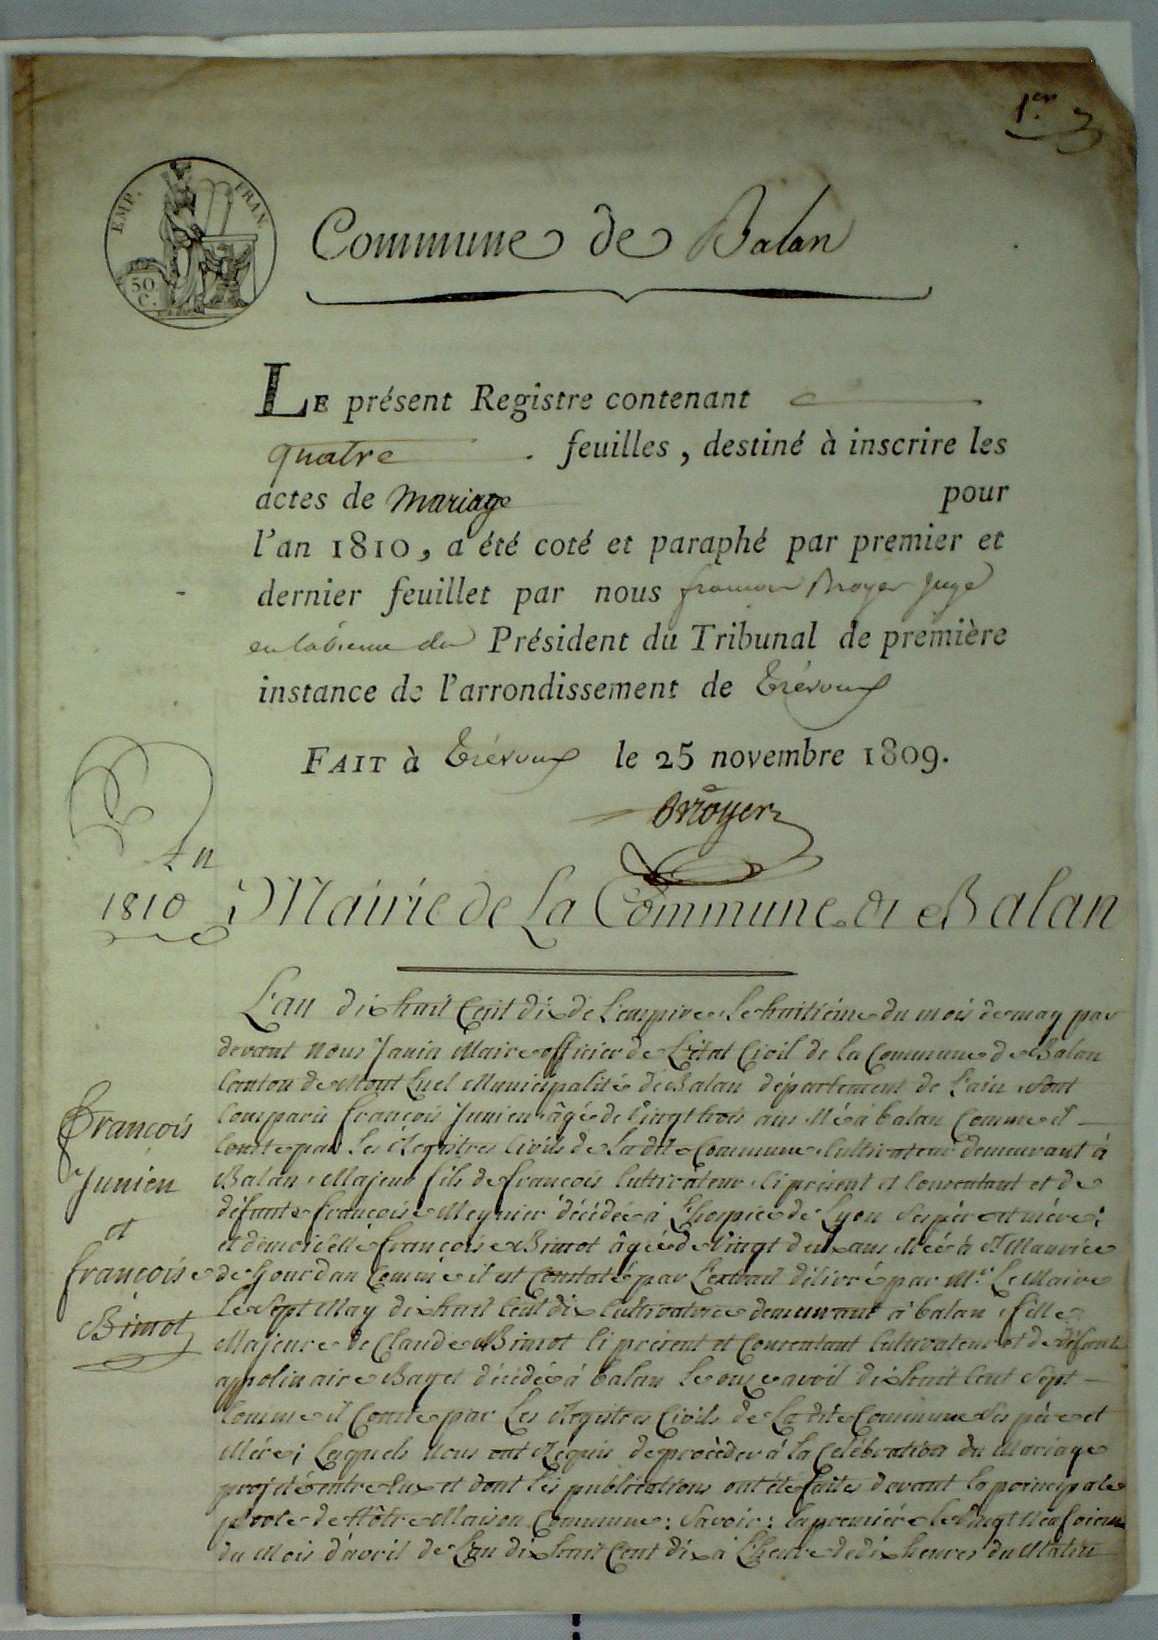 1.er
EMP. FRAN.
50 C.
Commune de Balan
LE présent Registre contenant
quatre feuilles, destiné à inscrire les
actes de Mariage pour
l'an 1810, a été coté et paraphé par premier et
dernier feuillet par nous françois Broyer Juge
en labsence du Président du Tribunal de première
instance de l'arrondissement de Trévoux
FAIT à Trévoux le 25 novembre 1809.
Broyer
An
1810
Mairie de La Commune de Balan
L'an dix huit Cent dix de L'empire le huitième du mois de may par
devant Nous Janin Maire officier de L'état Civil de la Commune de Balan
Canton de Mont Luel Municipalité de Balan département de L'ain sont
Comparu françois Junien âgé de Vingt trois ans Né à balan Comme il
Conste par Les Registres Civils de La dite Commune Cultivateur demeurant à
Balan, Majeur fils de françois Cultivateur Ci présent et Consentant et de
défunte françoise Meynier décédée à L'hospice de Lyon Ses père et mère;
et demoiselle françoise Bimot âgée de Vingt deux ans Née à St Maurice
de Gourdan Comme il est Constaté par L'extrait délivré par Mr. Le Maire
Le Sept May dix huit Cent dix Cultivatrice demeurant à balan fille
Majeure de Claude Bimot Ci présent et Consentant Cultivateur et de défunte
appolinaire Bayet décédée à balan Le onze avril dix huit Cent Sept
Comme il Conste par Les Registres Civils de La dite Commune Ses père et
Mère; Lesquels Nous ont Requis de procéder à La Célébration du Mariage
projeté entre Eux et dont Les publications ont été faites devant La principale
porte de Nôtre Maison Commune; Savoir: La première le Vingt Neufvième
du Mois d'avril de L'an dix huit Cent dix à L'heure de dix heures du Matin
François
Junien
et
françoise
Bimot